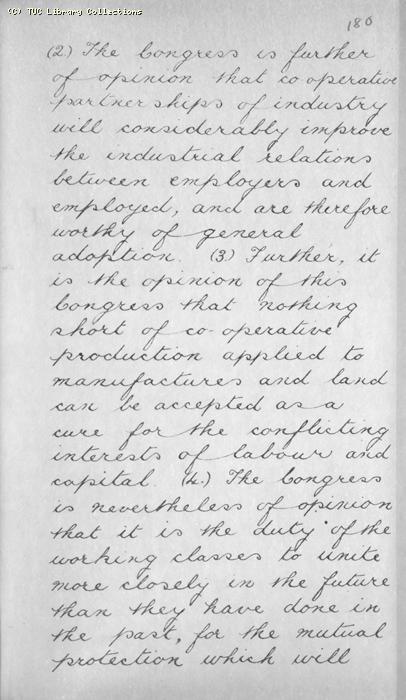 (C) TUC Library Collections
180
(2.) The Congress is further
of opinion that co operative
partnerships of industry
will considerably improve
the industrial relations
between employers and
employed, and are therefore
worthy of general
adoption. (3) Further, it
is the opinion of this
Congress that nothing
short of co-operative
production applied to
manufactures and land
can be accepted as a
cure for the conflicting
interests of labour and
capital. (4.) The Congress
is nevertheless of opinion
that it is the duty of the
working classes to unite
more closely in the future
than they have done in
the past, for the mutual
protection which will